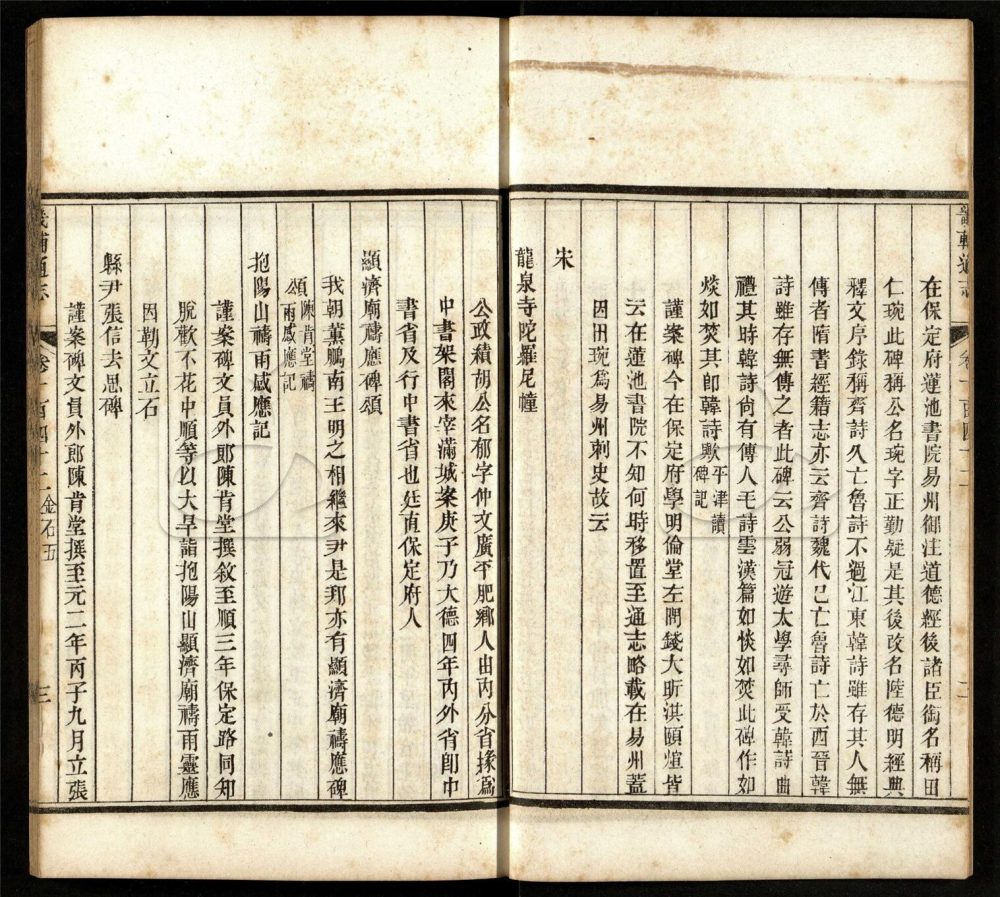 畿輔通志
卷一百四十二
二
在保定府蓮池書院易州御注道德經後諸臣銜名稱田
仁琬此碑稱公名琬字正勤疑是其後改名陸德明經典
釋文序錄稱齊詩久亡魯詩不過江東韓詩雖存其人無
傳者隋書經籍志亦云齊詩魏代已亡魯詩亡於西晉韓
詩雖存無傳之者此碑云公弱冠遊太學尋師受韓詩曲
禮其時韓詩尚有傳人毛詩雲漢篇如惔如焚此碑作如
焱如焚其卽韓詩歟平津讀
碑記
謹案碑今在保定府學明倫堂左閒錢大昕洪頤煊皆
云在蓮池書院不知何時移置至通志略載在易州蓋
因田琬爲易州刺史故云
宋
龍泉寺陀羅尼幢
公政績胡公名郁字仲文廣平肥鄉人由內分省掾爲
中書架閣來宰滿城案庚子乃大德四年內外省卽中
書省及行中書省也廷直保定府人
顯濟廟禱應碑頌
我朝董鵬南王明之相繼來尹是邦亦有顯濟廟禱應碑
頌陳肯堂禱
雨感應記
抱陽山禱雨感應記
謹案碑文員外郎陳肯堂撰敘至順三年保定路同知
脫歡不花中順等以大旱詣抱陽山顯濟廟禱雨靈應
因勒文立石
縣尹張信去思碑
謹案碑文員外郎陳肯堂撰至元二年丙子九月立張
畿輔通志
卷一百四十二 金石五
三